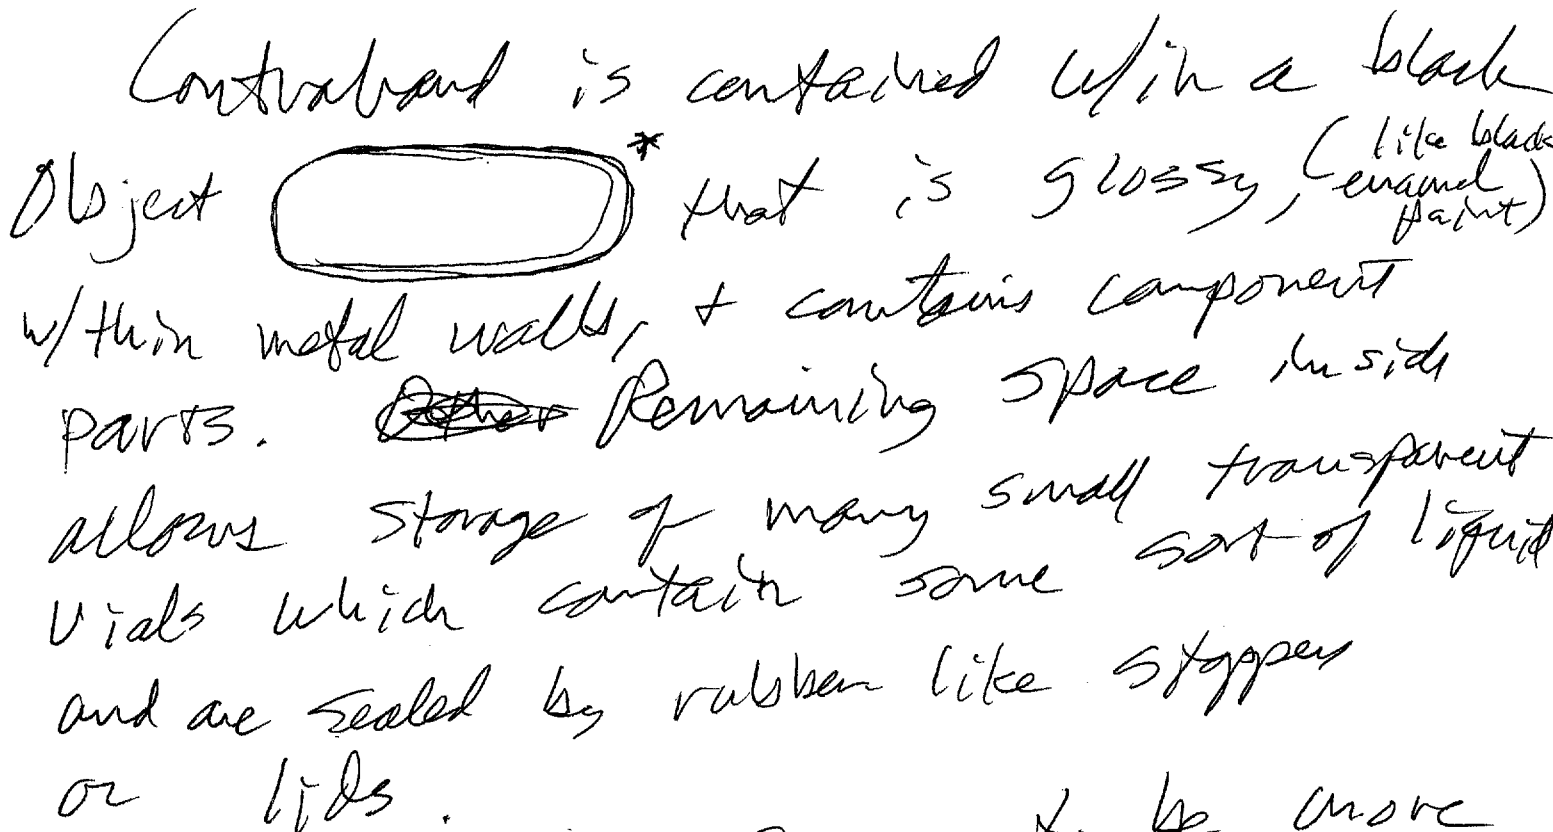 Contraband is contained w/in a black
Object * that is glossy, (like black enamel paint)
w/thin metal walls, + contains component
parts. Remaining space inside
allows storage of many small transparent
vials which contain some sort of liquid
and are sealed by rubber like stoppers
or lids.
be more